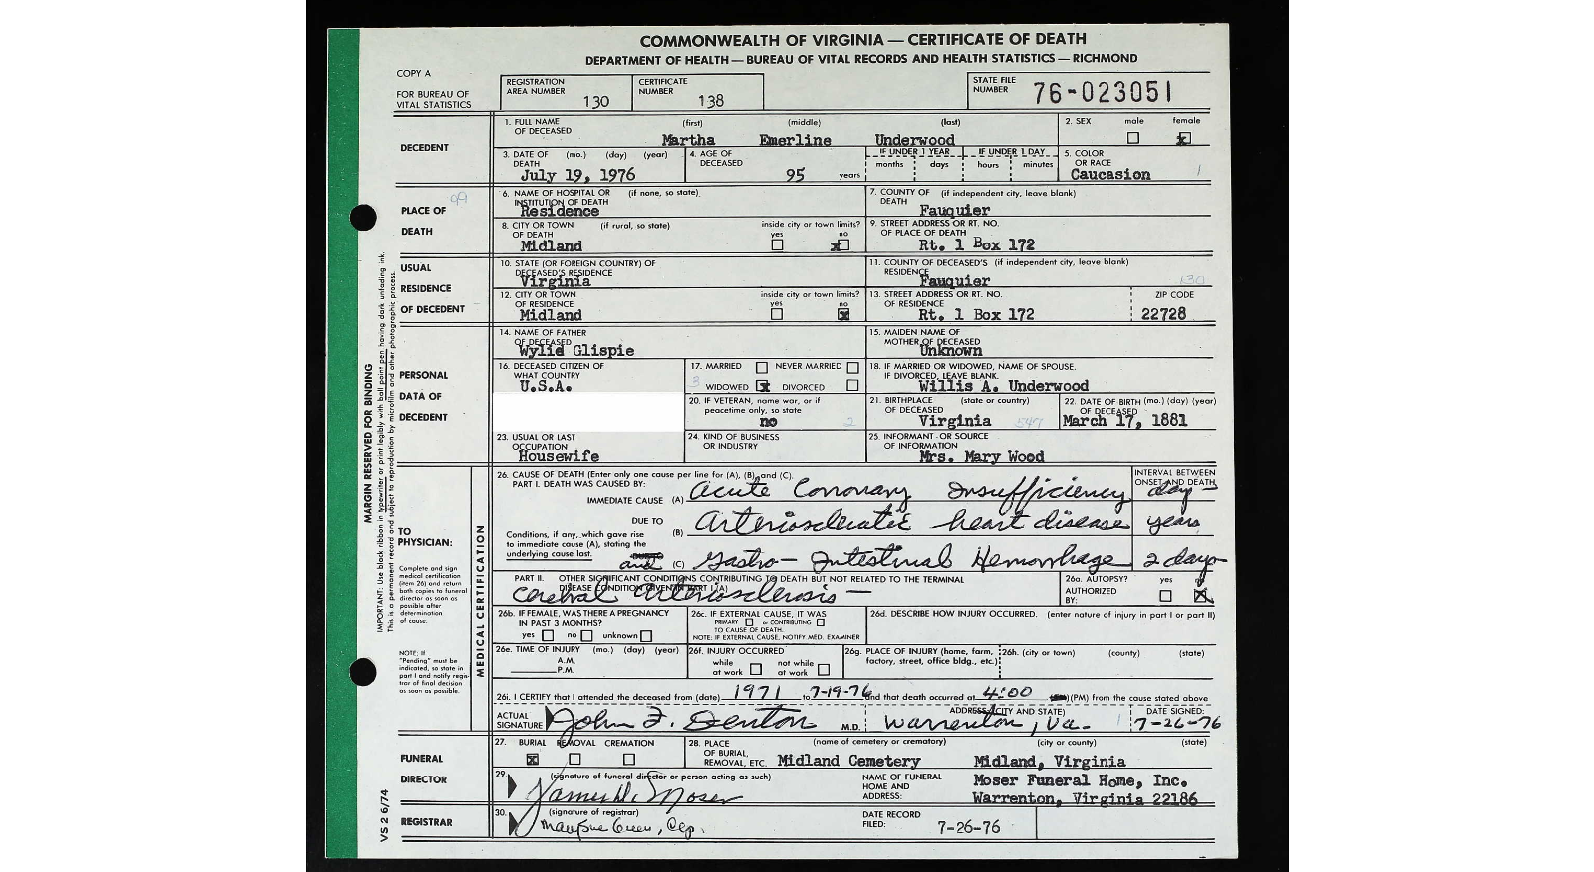 COMMONWEALTH OF VIRGINIA — CERTIFICATE OF DEATH
DEPARTMENT OF HEALTH — BUREAU OF VITAL RECORDS AND HEALTH STATISTICS — RICHMOND
COPY A
FOR BUREAU OF VITAL STATISTICS
REGISTRATION AREA NUMBER 130
CERTIFICATE NUMBER 138
STATE FILE NUMBER 76-023051
DECEDENT
1. FULL NAME OF DECEASED (first) (middle) (last)
Martha Emerline Underwood
2. SEX male female x
3. DATE OF DEATH (mo.) (day) (year)
July 19, 1976
4. AGE OF DECEASED 95 years
IF UNDER 1 YEAR months days
IF UNDER 1 DAY hours minutes
5. COLOR OR RACE
Caucasion 1
PLACE OF DEATH
99
6. NAME OF HOSPITAL OR INSTITUTION OF DEATH (if none, so state)
Residence
7. COUNTY OF DEATH (if independent city, leave blank)
Fauquier
8. CITY OR TOWN OF DEATH (if rural, so state)
Midland
inside city or town limits? yes no x
9. STREET ADDRESS OR RT. NO. OF PLACE OF DEATH
Rt. 1 Box 172
USUAL RESIDENCE OF DECEDENT
10. STATE (OR FOREIGN COUNTRY) OF DECEASED'S RESIDENCE
Virginia
11. COUNTY OF DECEASED'S RESIDENCE (if independent city, leave blank)
Fauquier 130
12. CITY OR TOWN OF RESIDENCE
Midland
inside city or town limits? yes no x
13. STREET ADDRESS OR RT. NO. OF RESIDENCE
Rt. 1 Box 172
ZIP CODE
22728
PERSONAL DATA OF DECEDENT
14. NAME OF FATHER OF DECEASED
Wylie Glispie
15. MAIDEN NAME OF MOTHER OF DECEASED
Unknown
16. DECEASED CITIZEN OF WHAT COUNTRY
U.S.A.
17. MARRIED NEVER MARRIED
3 WIDOWED x DIVORCED
18. IF MARRIED OR WIDOWED, NAME OF SPOUSE. IF DIVORCED, LEAVE BLANK.
Willis A. Underwood
20. IF VETERAN, name war, or if peacetime only, so state
no 2
21. BIRTHPLACE OF DECEASED (state or country)
Virginia
22. DATE OF BIRTH (mo.) (day) (year) OF DECEASED
March 17, 1881
23. USUAL OR LAST OCCUPATION
Housewife
24. KIND OF BUSINESS OR INDUSTRY
25. INFORMANT - OR SOURCE OF INFORMATION
Mrs. Mary Wood
MARGIN RESERVED FOR BINDING
IMPORTANT: Use black ribbon in typewriter or print legibly with ball point pen having dark unfading ink.
This is a permanent record and subject to reproduction by microfilm and other photographic process.
TO PHYSICIAN:
Complete and sign medical certification (item 26) and return both copies to funeral director as soon as possible after determination of cause.
NOTE: If "Pending" must be indicated, so state in part I and notify registrar of final decision as soon as possible.
MEDICAL CERTIFICATION
26. CAUSE OF DEATH (Enter only one cause per line for (A), (B), and (C).
PART I. DEATH WAS CAUSED BY:
INTERVAL BETWEEN ONSET AND DEATH
IMMEDIATE CAUSE (A) Acute Coronary Insufficiency day
DUE TO (B) Arteriosclerotic heart disease years
Conditions, if any, which gave rise to immediate cause (A), stating the underlying cause last.
and (C) Gastro-Intestinal Hemorrhage 2 days
PART II. OTHER SIGNIFICANT CONDITIONS CONTRIBUTING TO DEATH BUT NOT RELATED TO THE TERMINAL DISEASE CONDITION GIVEN IN PART I (A)
Cerebral Arteriosclerosis —
26a. AUTOPSY? yes no X
AUTHORIZED BY:
26b. IF FEMALE, WAS THERE A PREGNANCY IN PAST 3 MONTHS?
yes no unknown
26c. IF EXTERNAL CAUSE, IT WAS
PRIMARY or CONTRIBUTING
TO CAUSE OF DEATH.
NOTE: IF EXTERNAL CAUSE, NOTIFY MED. EXAMINER
26d. DESCRIBE HOW INJURY OCCURRED. (enter nature of injury in part I or part II)
26e. TIME OF INJURY (mo.) (day) (year)
A.M.
P.M.
26f. INJURY OCCURRED
while at work not while at work
26g. PLACE OF INJURY (home, farm, factory, street, office bldg., etc.)
26h. (city or town) (county) (state)
26i. I CERTIFY that I attended the deceased from (date) 1971 to 7-19-76 and that death occurred at 4:00 (PM) from the cause stated above
ACTUAL SIGNATURE John F. Denton M.D.
ADDRESS (CITY AND STATE) Warrenton, Va. 1
DATE SIGNED: 7-26-76
FUNERAL DIRECTOR
27. BURIAL x REMOVAL CREMATION
28. PLACE OF BURIAL, REMOVAL, ETC. (name of cemetery or crematory) (city or county) (state)
Midland Cemetery Midland, Virginia
29. (signature of funeral director or person acting as such)
James W. Moser
NAME OF FUNERAL HOME AND ADDRESS:
Moser Funeral Home, Inc.
Warrenton, Virginia 22186
REGISTRAR
30. (signature of registrar)
Mary Sue Green, Dep.
DATE RECORD FILED: 7-26-76
VS 2 6/74